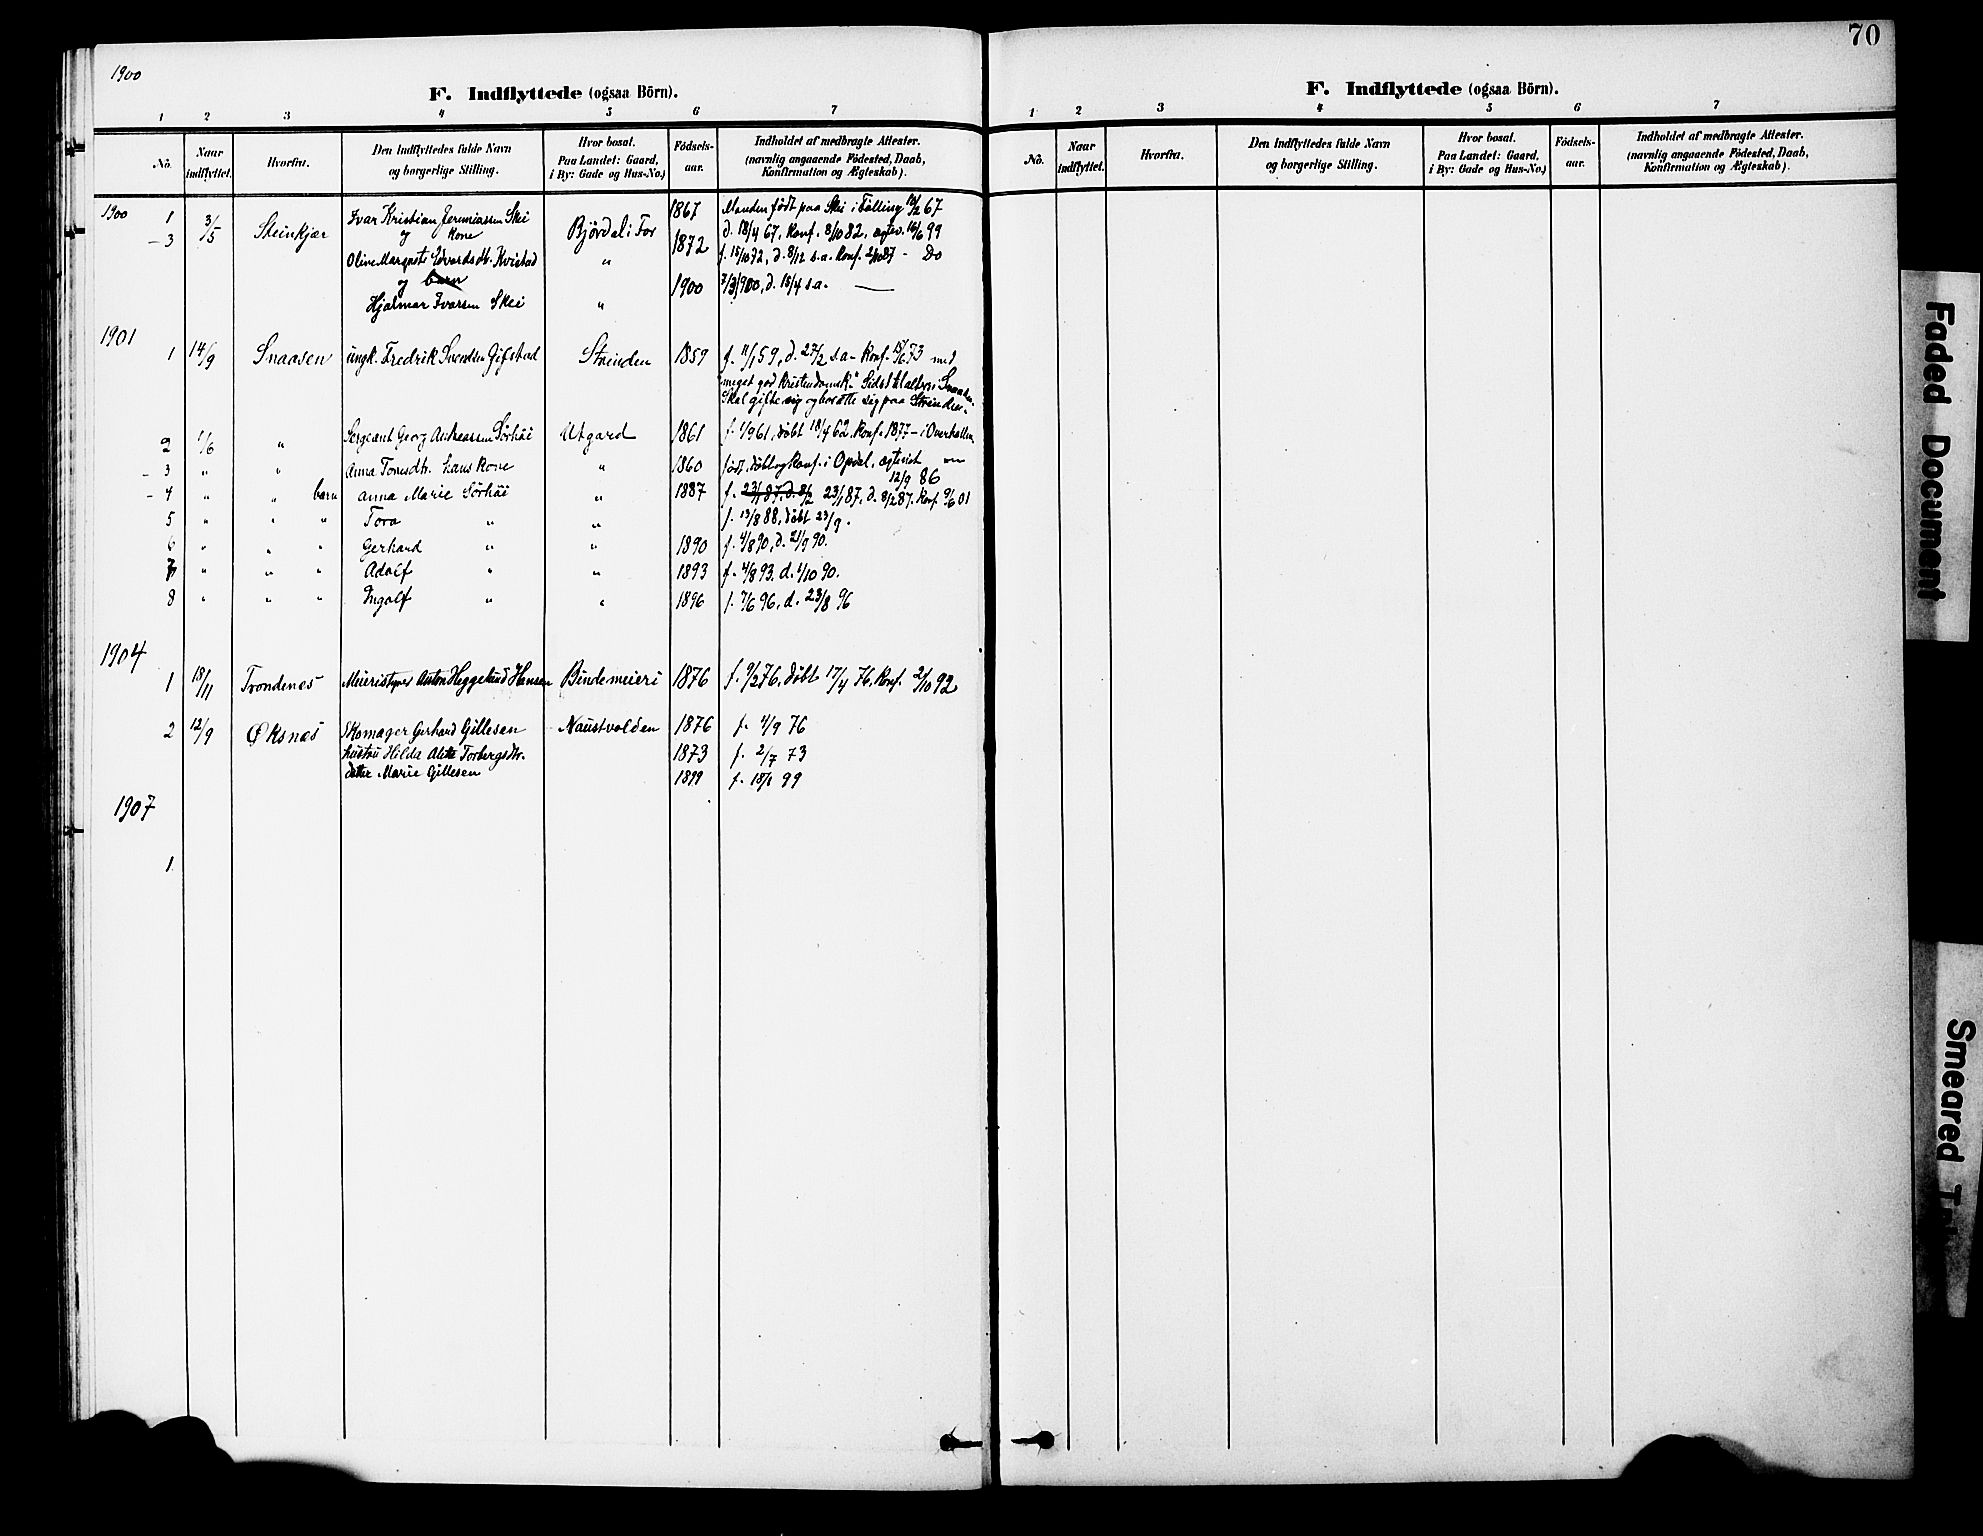 70
1900
F. Indflyttede (ogsaa Börn).
1 2 3 4 5 6 7
No. Naar indflyttet. Hvorfra. Den Indflyttedes fulde Navn og borgerlige Stilling. Hvor bosat. Paa Landet: Gaard, i By: Gade og Hus-No.) Födsels-aar. Indholdet af medbragte Attester. (navnlig angaaende Födested, Daab, Konfirmation og Ægteskab).
1900 1 3/5 Steinkjær Ivar Kristian Jeremiassen Skei Björdal i For 1867 Manden födt paa Skei i Følling 10/2 67
- 3 og kone 1872 d. 18/4 67, Konf. 8/10 82, egtev. 16/6 99
Oline Margrete Edvardsdt. Kvistad " f. 15/10 72, d. 8/12 s.a. Konf. 2/10 87 - Do
og barn 1900 7/3 1900, d. 15/4 s.a.
Hjalmar Ivarsen Skei "
1901
1 14/9 Snaasen ungk. Fredrik Svendsen Gifstad Strinden 1859 f. 11/1 59, d. 27/2 s.a. Konf. 15/6 73 med
"meget god Kristendomsk." Sidst til alters i Snaasen.
Skal gifte sig og bosætte sig paa Strinden.
2 1/6 " Sergeant Georg Andreassen Sörhöi Utgard 1861 f. 1/9 61, döbt 18/4 62. Konf. 1877 - i Overhallen
- 3 " " Anna Tomsdtr. hans Kone " 1860 födt, döbt og Konf. i Opdal, egteviet
12/9 86
- 4 " " barn Anna Marie Sörhöi " 1887 f. 23/1 87, d. 8/2 23/1 87, d. 8/2 87. Konf. 9/6 01
5 " " " Tora " " f. 13/8 88, döbt 23/9.
6 " " " Gerhard " " 1890 f. 4/8 90, d. 21/9 90.
7 " " " Adolf " " 1893 f. 4/8 93. d. 1/10 90.
8 " " " Ingolf " " 1896 f. 7/6 96, d. 23/8 96
1904
1 18/11 Trondenes Meieristyrer Anton Heggelund Hansen Binde meieri 1876 f. 9/2 76, döbt 17/4 76, Konf. 2/10 92
2 12/9 Øksnæs Skomager Gerhard Gillesen Naustvolden 1876 f. 4/9 76
hustru Hilda Alette Torbergsdtr. 1873 f. 2/7 73
datter Marie Gillesen 1899 f. 18/1 99
1907
1
F. Indflyttede (ogsaa Börn).
1 2 3 4 5 6 7
No. Naar indflyttet. Hvorfra. Den Indflyttedes fulde Navn og borgerlige Stilling. Hvor bosat. Paa Landet: Gaard, i By: Gade og Hus-No.) Födsels-aar. Indholdet af medbragte Attester. (navnlig angaaende Födested, Daab, Konfirmation og Ægteskab).
Faded Document
Smeared